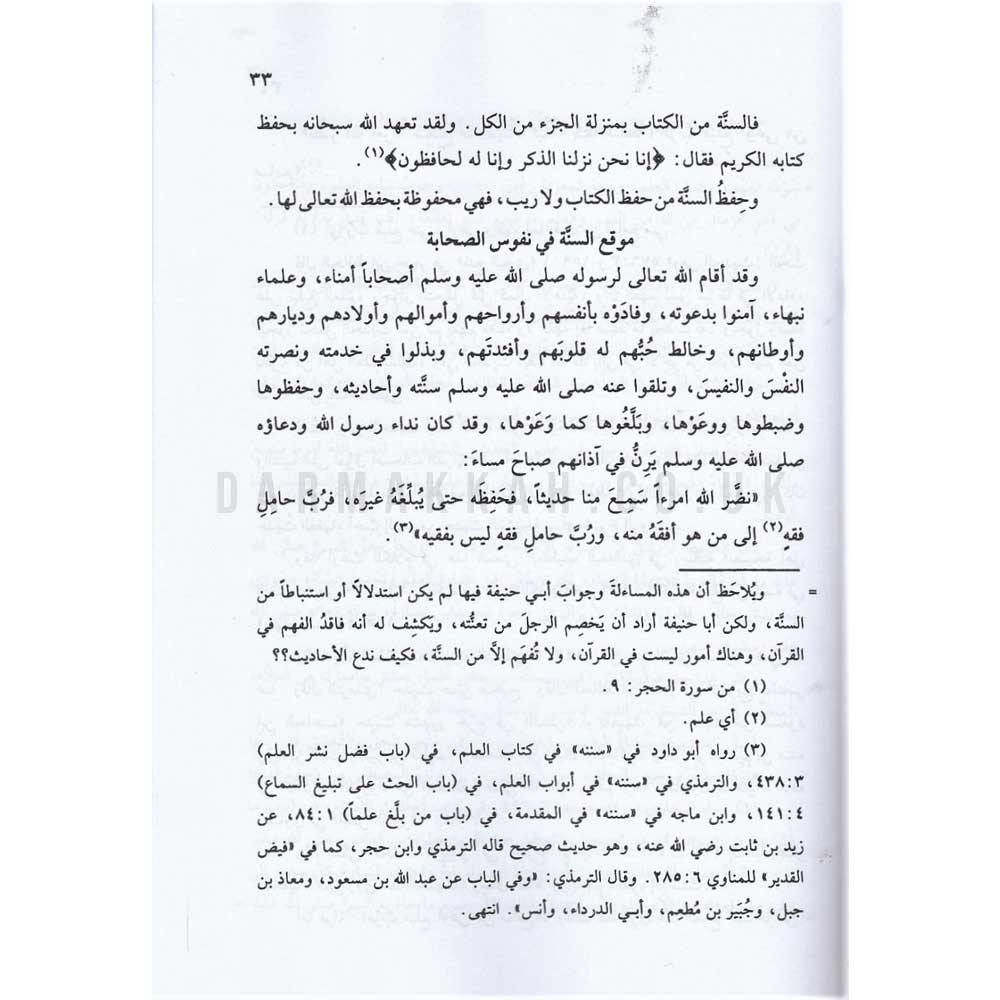 ٣٣
فالسنَّة من الكتاب بمنزلة الجزء من الكل. ولقد تعهد الله سبحانه بحفظ
كتابه الكريم فقال: ﴿إنا نحن نزلنا الذكر وإنا له لحافظون﴾(١).
وحِفظُ السنَّة من حفظ الكتاب ولا ريب، فهي محفوظة بحفظ الله تعالى لها.
موقع السنَّة في نفوس الصحابة
وقد أقام الله تعالى لرسوله صلى الله عليه وسلم أصحاباً أمناء، وعلماء
نبهاء، آمنوا بدعوته، وفادَوْه بأنفسهم وأرواحهم وأموالهم وأولادهم وديارهم
وأوطانهم، وخالط حُبُّهم له قلوبَهم وأفئدتَهم، وبذلوا في خدمته ونصرته
النفْسَ والنفيسَ، وتلقوا عنه صلى الله عليه وسلم سنَّته وأحاديثه، وحفظوها
وضبطوها ووعَوْها، وبَلَّغُوها كما وَعَوْها، وقد كان نداء رسول الله ودعاؤه
صلى الله عليه وسلم يَرِنُّ في آذانهم صباحَ مساءَ:
DARMAKKAH.CO.UK
«نضَّر الله امرءاً سَمِعَ منا حديثاً، فحَفِظَه حتى يُبلِّغَهُ غيرَه، فرُبَّ حاملِ
فقهٍ(٢) إلى من هو أفقَهُ منه، ورُبَّ حاملِ فقهٍ ليس بفقيه»(٣).
= ويُلاحَظ أن هذه المساءلةَ وجوابَ أبي حنيفة فيها لم يكن استدلالاً أو استنباطاً من
السنَّة، ولكن أبا حنيفة أراد أن يَخصِم الرجلَ من تعنُّته، ويَكشِف له أنه فاقدُ الفهم في
القرآن، وهناك أمور ليست في القرآن، ولا تُفهَم إلاَّ من السنَّة، فكيف ندع الأحاديث؟؟
(١) من سورة الحجر: ٩.
(٢) أي علم.
(٣) رواه أبو داود في «سننه» في كتاب العلم، في (باب فضل نشر العلم)
٤٣٨:٣، والترمذي في «سننه» في أبواب العلم، في (باب الحث على تبليغ السماع)
١٤١:٤، وابن ماجه في «سننه» في المقدمة، في (باب من بلَّغ علماً) ٨٤:١، عن
زيد بن ثابت رضي الله عنه، وهو حديث صحيح قاله الترمذي وابن حجر، كما في «فيض
القدير» للمناوي ٢٨٥:٦. وقال الترمذي: «وفي الباب عن عبد الله بن مسعود، ومعاذ بن
جبل، وجُبَير بن مُطعِم، وأبي الدرداء، وأنس». انتهى.